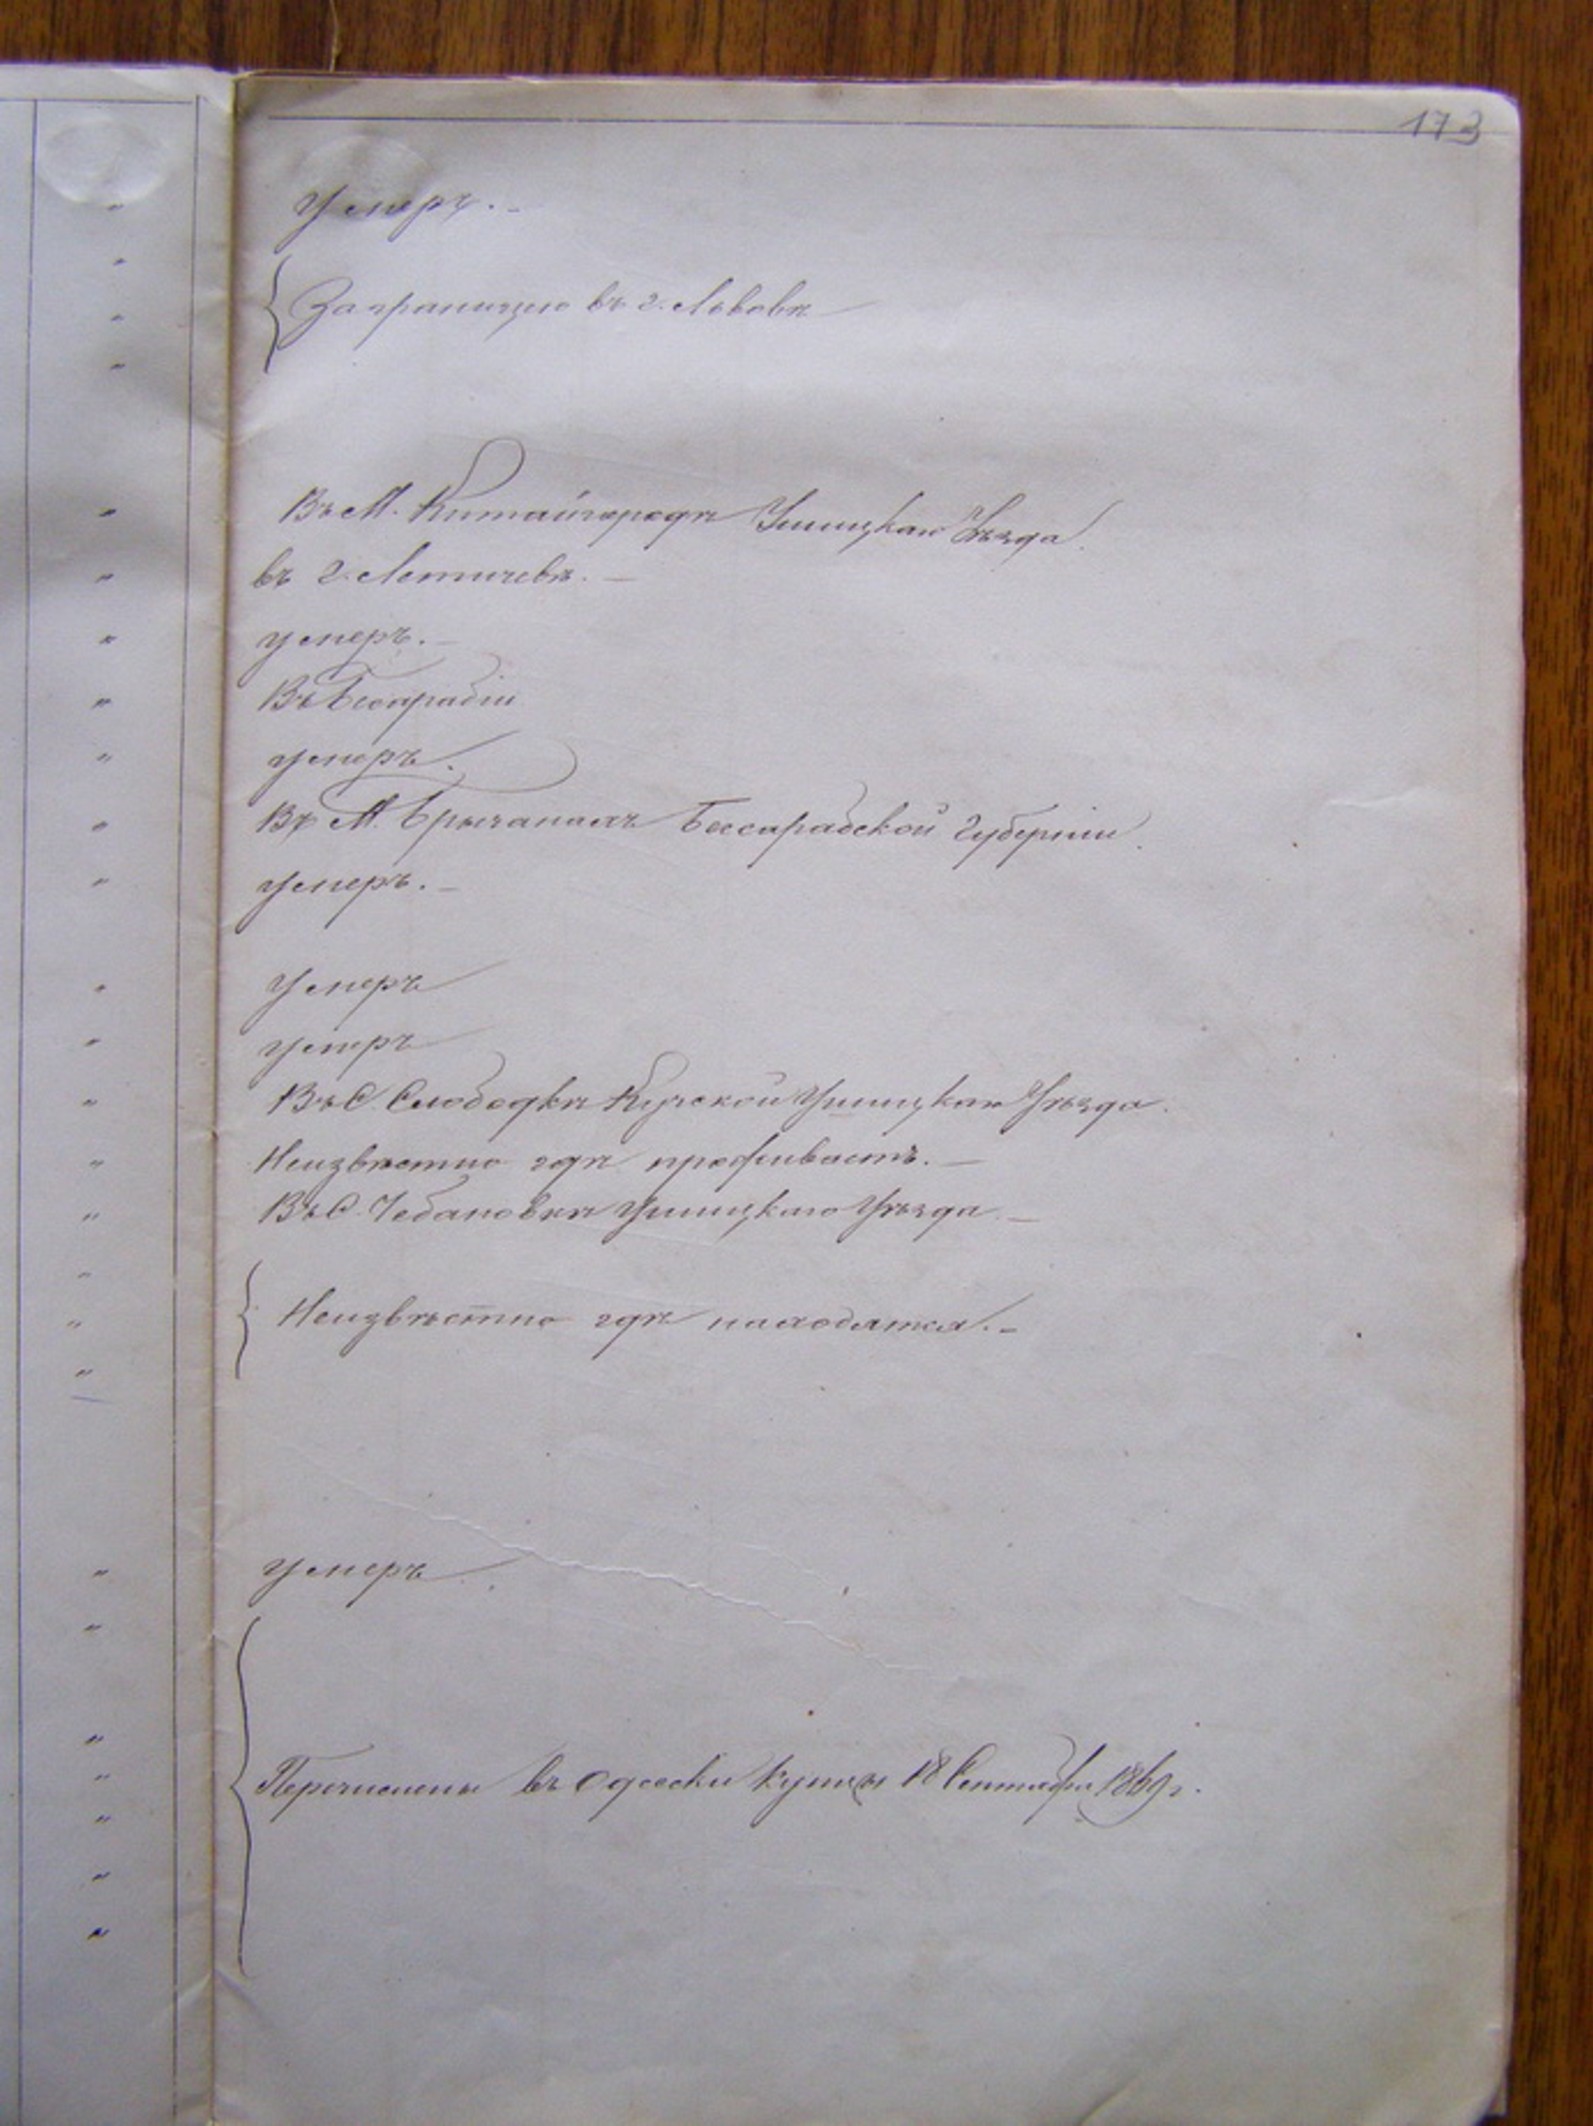 173
Умеръ. -
Заграницею въ г. Львовѣ
Въ М. Китайгородѣ Ушицкаго Уѣзда.
въ г. Летичевѣ. -
умеръ. -
Въ Бесарабіи
умеръ.
Въ М. Бричанахъ Бессарабской Губерніи.
Умеръ. -
Умеръ
умеръ
Въ С. Слободкѣ Ушицкаго Уѣзда.
Неизвѣстно гдѣ проживаетъ. -
Въ С. Чебановкѣ Ушицкаго Уѣзда. -
Неизвѣстно гдѣ находятся. -
умеръ
Перечислены въ Одесски купцы 18 Сентября 1869 г.